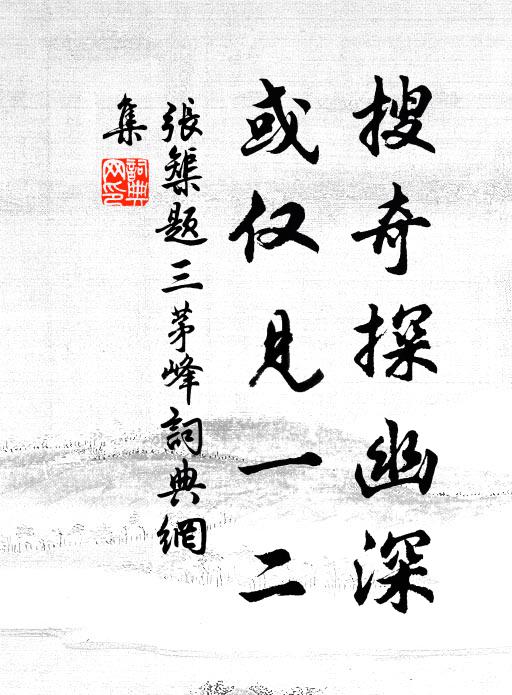 搜奇探幽深
或仅见一二
張榘题三茅峰詞典網
集
詞典
网印